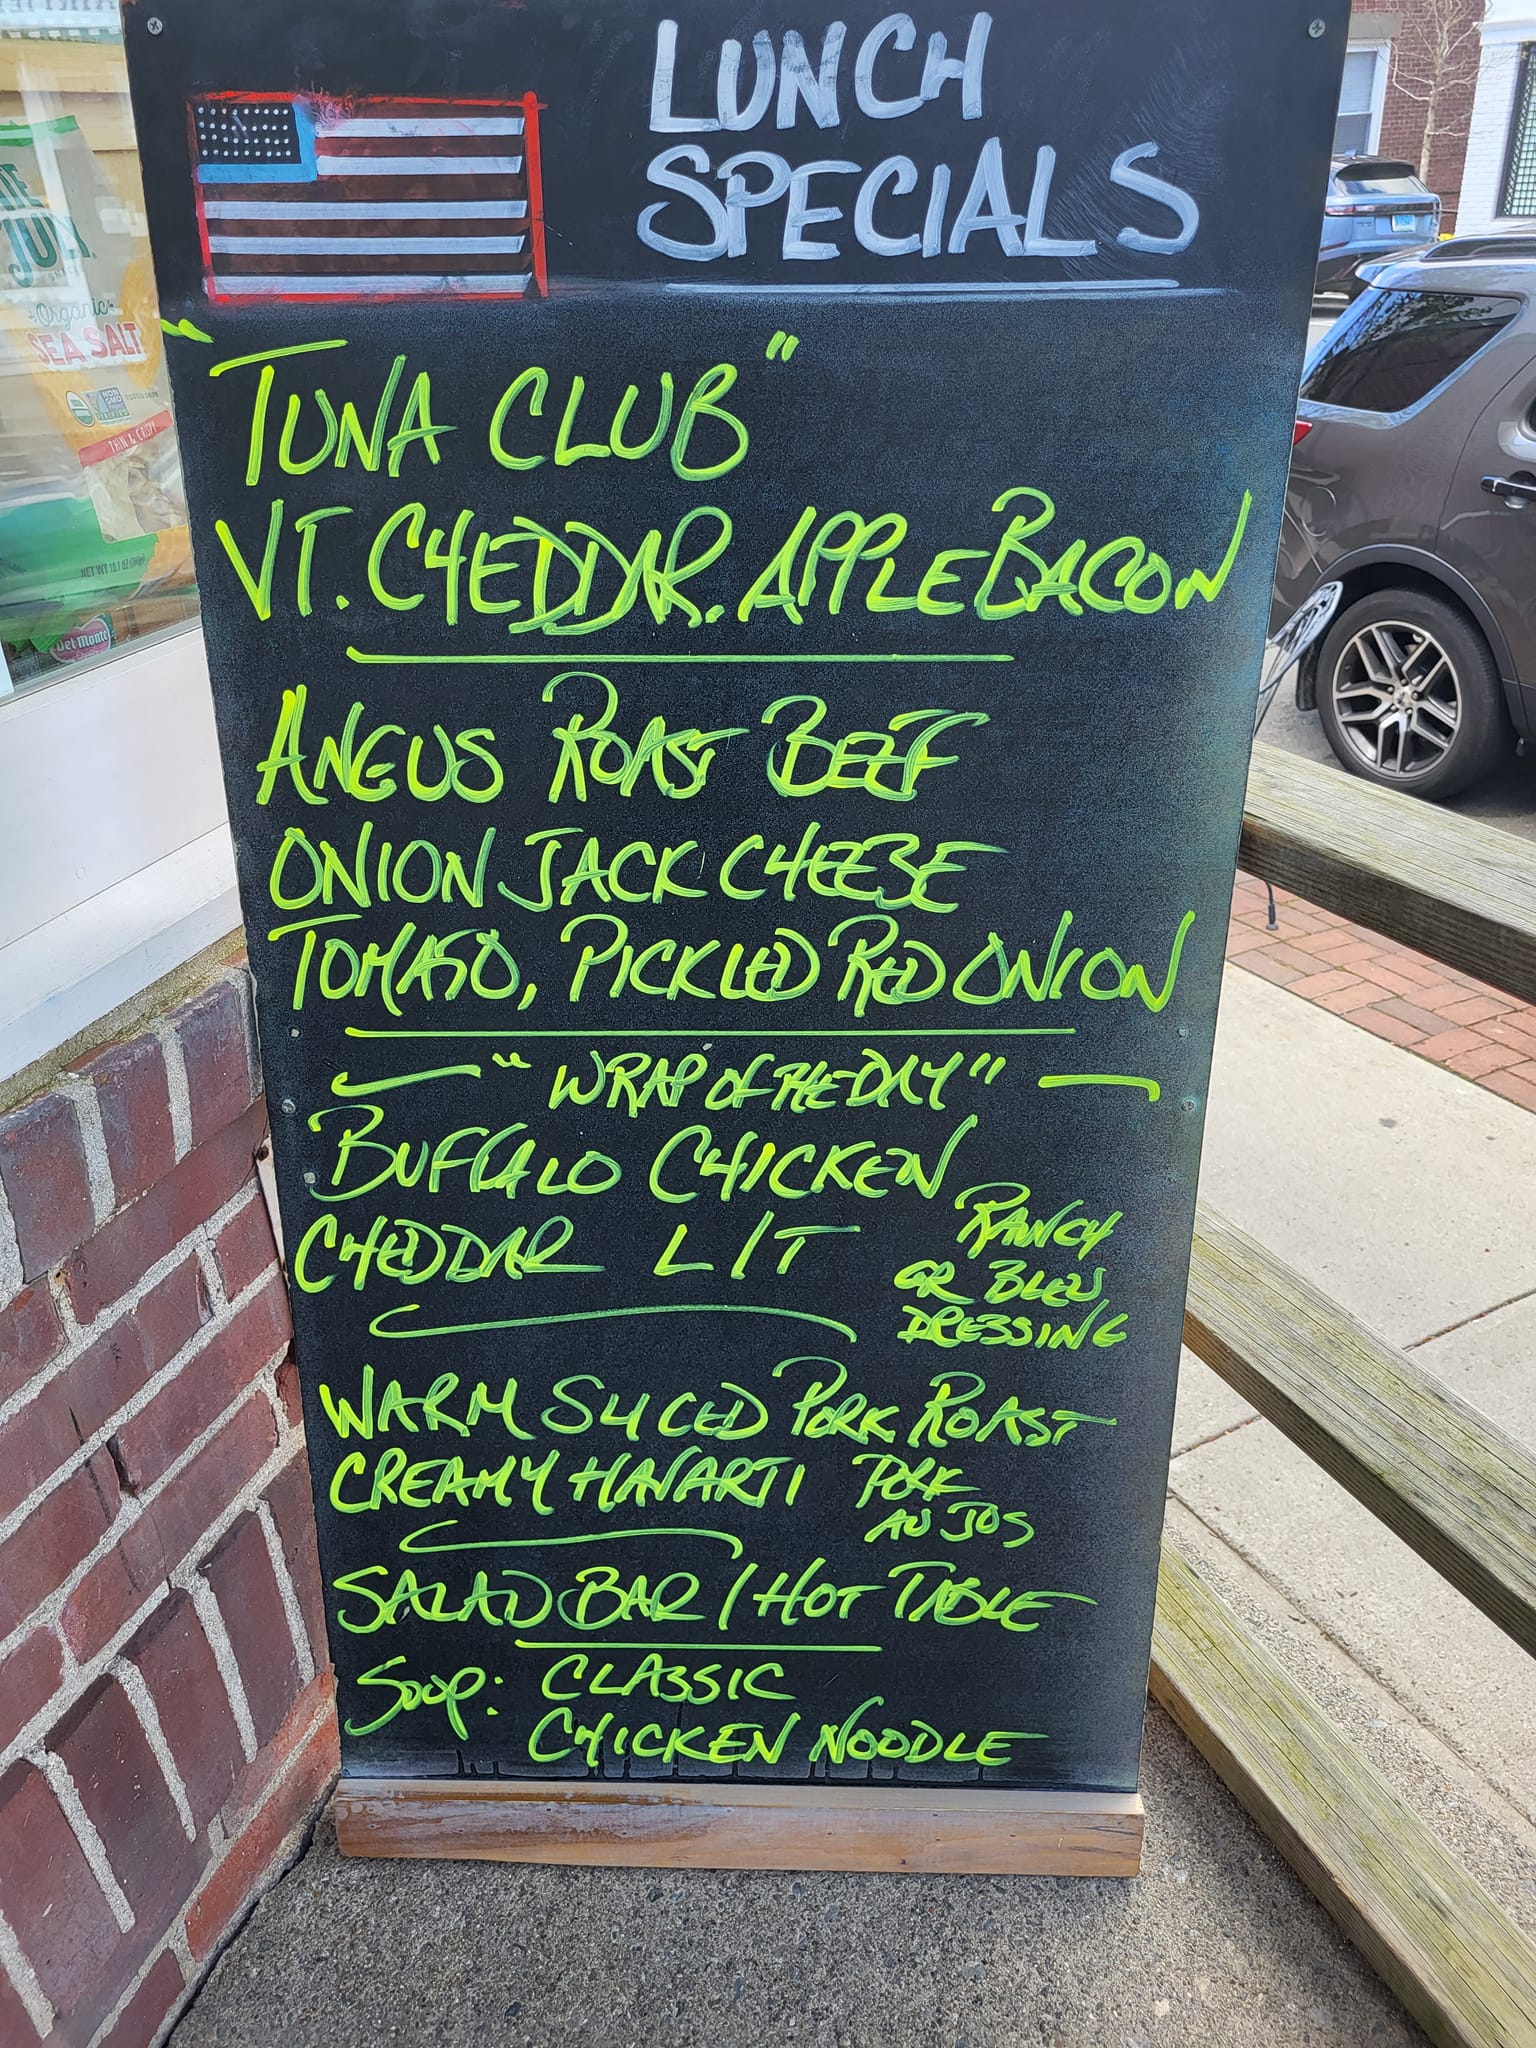 LUNCH
SPECIALS
"TUNA CLUB"
VT. CHEDDAR. APPLE BACON
ANGUS ROAST BEEF
ONION JACK CHEESE
TOMATO, PICKLED RED ONION
"WRAP OF THE DAY"
BUFFALO CHICKEN
CHEDDAR L/T
RANCH
OR BLEU
DRESSING
WARM SLICED PORK ROAST
CREAMY HAVARTI
PORK
AU JUS
SALAD BAR / HOT TABLE
SOUP: CLASSIC
CHICKEN NOODLE
Organic
SEA SALT
NON
GMO
THIN & CRISPY
Del Monte